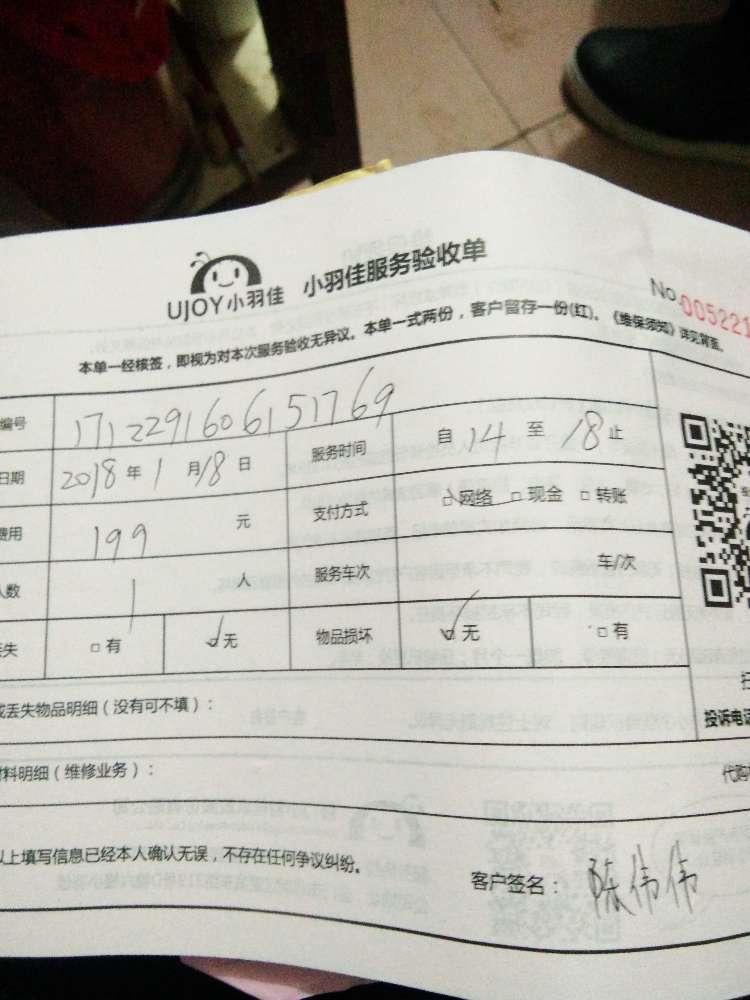 UJOY小羽佳 小羽佳服务验收单
No.005221
本单一经核签，即视为对本次服务验收无异议。本单一式两份，客户留存一份(红)。《维保须知》详见背面。
编号 1712291606151769
日期 2018年1月18日 服务时间 自14至18止
费用 199元 支付方式 ☑网络 □现金 □转账
人数 1人 服务车次 车/次
丢失 □有 ☑无 物品损坏 ☑无 □有
或丢失物品明细（没有可不填）：
投诉电话
材料明细（维修业务）：
代购
以上填写信息已经本人确认无误，不存在任何争议纠纷。
客户签名：陈伟伟